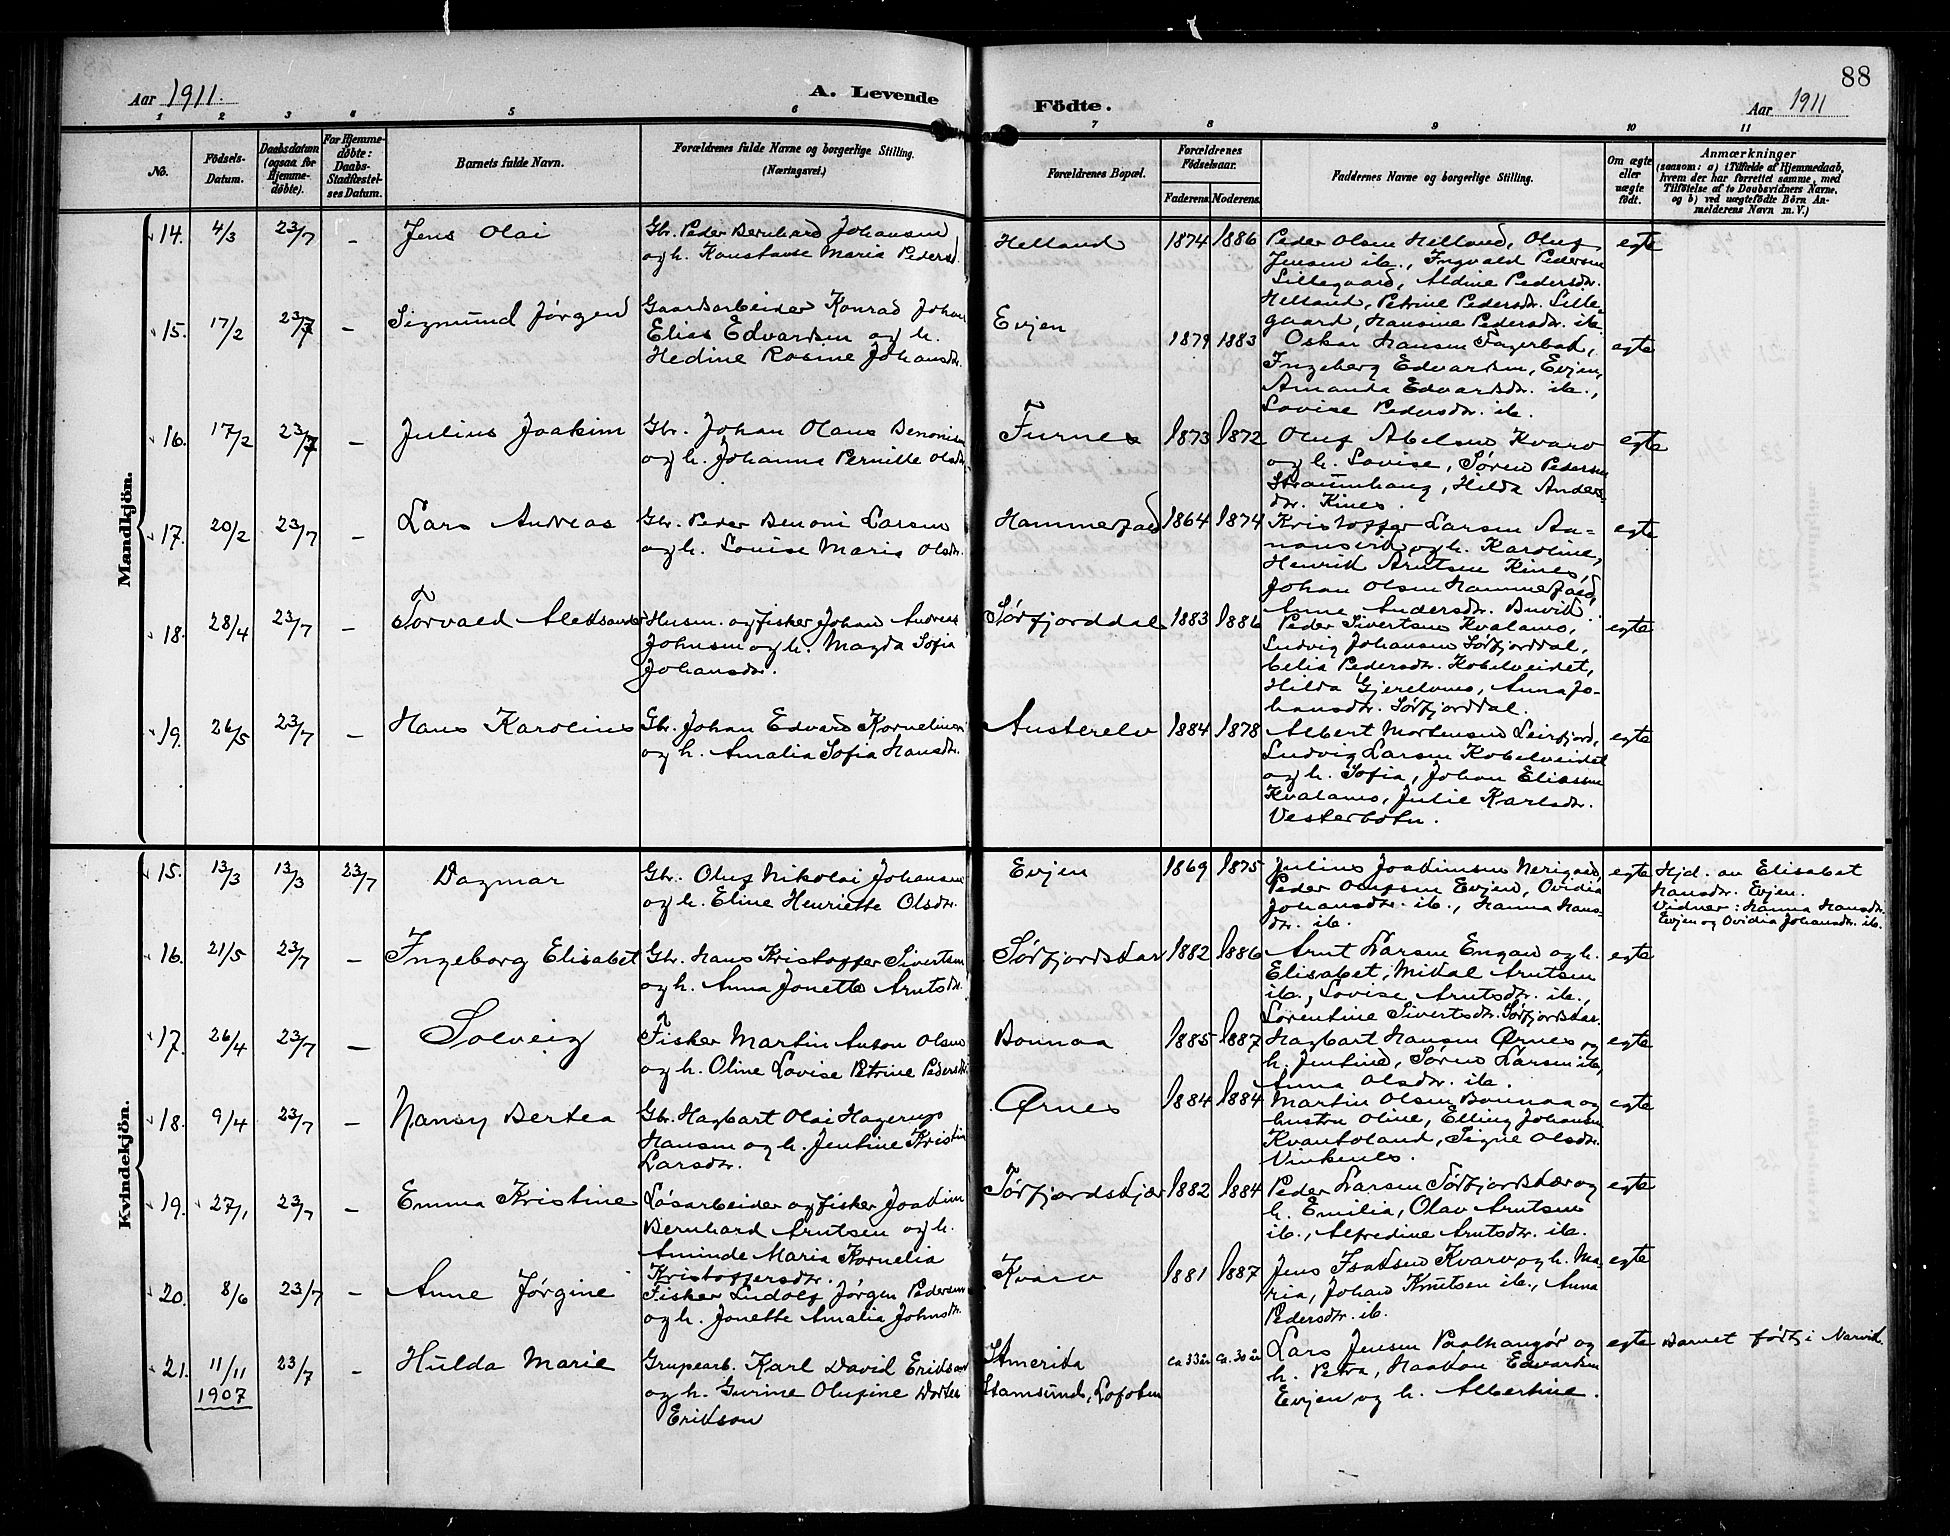 88
Aar 1911.
A. Levende
Födte.
Aar 1911
1 2 3 4 5 6 7 8 9 10 11
No.
Födsels-Datum.
Daabsdatum (ogsaa for Hjemmedøbte).
For Hjemmedøbte: Daabs-Stadfæstelses Datum.
Barnets fulde Navn.
Forældrenes fulde Navne og borgerlige Stilling. (Næringsvei.)
Forældrenes Bopæl.
Forældrenes Födselsaar.
Faderens. Moderens.
Faddernes Navne og borgerlige Stilling.
Om ægte eller uægte födt.
Anmærkninger
(saasom: a) i Tilfælde af Hjemmedaab, hvem der har forrettet samme, med Tilföielse af to Daabsvidners Navne, og b) ved uægtefödte Börn Anmelderens Navn m. V.)
Mandkjön.
14. 4/3 23/7 – Jens Olai
Gbr. Peder Bernhard Johansen
og h. Konstanse Maria Pedersd.
Helland 1874 1886
Peder Olsen Helland, Oluf
Jensen ib., Ingvald Pedersen
Lillegaard, Aldine Pedersdtr.
Helland, Petrine Pedersdtr. Lille-
gaard, Hansine Pedersdtr. ib.
egte
15. 17/2 23/7 – Sigmund Jørgen
Gaardsarbeider Konrad Johan
Elias Edvardsen og h.
Hedine Rosine Johansdtr.
Evjen 1879 1883
Oskar Hansen Fagerbad,
Ingeberg Edvardsen, Evjen,
Amanda Edvardsdtr. ib.,
Lovise Pedersdtr. ib.
egte
16. 17/2 23/7 – Julius Joakim
Gbr. Johan Olaus Benonisen
og h. Johanna Pernille Olsdtr.
Furnes 1873 1872
Oluf Abelsen Kvarv
og h. Lovise, Søren Pedersen
Straumhaug, Hilda Anders-
dtr. Kines.
egte
17. 20/2 23/7 – Lars Andreas
Gbr. Peder Benoni Larsen
og h. Louise Maria Olsdtr.
Hammerfald 1864 1874
Kristoffer Larsen
og h. Karoline,
Henrik Arntsen Kines,
Johan Olsen Hammerfald,
Anne Andersdtr. Buvik.
egte
18. 28/4 23/7 – Torvald Aleksander
Husm. og fisker Johan Andreas
Johnsen og h. Magda Sofia
Johansdtr.
Sørfjorddal 1883 1886
Peder Sivertsen Kvalanes,
Ludvig Johansen Sørfjorddal,
Celia Pedersdtr. Kobelveidet,
Hilda Gjerelvnes, Anna Jo-
hansdtr. Sørfjorddal.
egte
19. 26/5 23/7 – Hans Karolius
Gbr. Johan Edvard Korneliusen
og h. Amalia Sofia Hansdtr.
Austerelv 1884 1878
Albert Mortensen Leirfjord,
Ludvig Larsen Kobelveidet
og h. Sofia, Johan Eliassen
Kvalanes, Julie Karlsdtr.
Vesterbotn.
egte
Kvindekjön.
15. 13/3 13/3 23/7 Dagmar
Gbr. Oluf Nikolai Johansen
og h. Eline Henriette Olsdtr.
Evjen 1869 1875
Julius Joakimsen Nerigaard,
Peder Olufsen Evjen, Ovidia
Johansdtr. ib., Hanna Hans-
dtr. ib.
egte
Hjd. av Elisabet
Hansdtr. Evjen.
Vidner: Hanna Hansdtr.
Evjen og Ovidia Johansdtr. ib.
16. 21/5 23/7 – Ingeborg Elisabet
Gbr. Hans Kristoffer Sivertsen
og h. Anna Jonette Arntsdtr.
Sørfjordskar 1882 1886
Arnt Larsen Engan og h.
Elisabet, Mikal Arntsen
ib., Lovise Arntsdtr. ib.,
Lorentine Sivertsdtr. Sørfjordskar.
egte
17. 26/4 23/7 – Solveig
Fisker Martin Anton Olsen
og h. Oline Lovise Petrine Pedersdtr.
Bonnaa 1885 1887
Hagbart Hansen Ørnes og
h. Jentine, Søren Larsen ib.,
Anna Olsdtr. ib.
egte
18. 9/4 23/7 – Nansy Bertea
Gbr. Hagbart Olai Hagerup
Hansen og h. Jentine Kristin
Larsdtr.
Ørnes 1884 1884
Martin Olsen Bonnaa og
hustru Oline, Elling Johansen
Kvantoland, Signe Olsdtr.
Vinkenes.
egte
19. 27/1 23/7 – Emma Kristine
Løsarbeider og fisker Joakim
Bernhard Arntsen og h.
Aminde Maria Kornelia
Kristoffersdtr.
Sørfjordskjær 1882 1884
Peder Larsen Sørfjordskær og
h. Emilia, Olav Arntsen
ib., Alfredine Arntsdtr. ib.
egte
20. 8/6 23/7 – Anne Jørgine
Fisker Ludolf Jørgen Pedersen
og h. Jonette Amalia Johnsdtr.
Kvarv 1881 1887
Jens Isaksen Kvarv og h. Ma-
ria, Johan Knutsen ib., Anna
Pedersdtr. ib.
egte
21. 11/11 1907 23/7 – Hulda Marie
Grupearb. Karl David Erikson
og h. Gurine Olufine Dortea
Erikson
Amerika
Stamsund, Lofoten
ca 33 år ca. 30 år
Lars Jensen Paalhangør og
h. Petra, Haakon Edvardsen
Evjen og h. Albertine.
egte
Barnet født i Narvik.